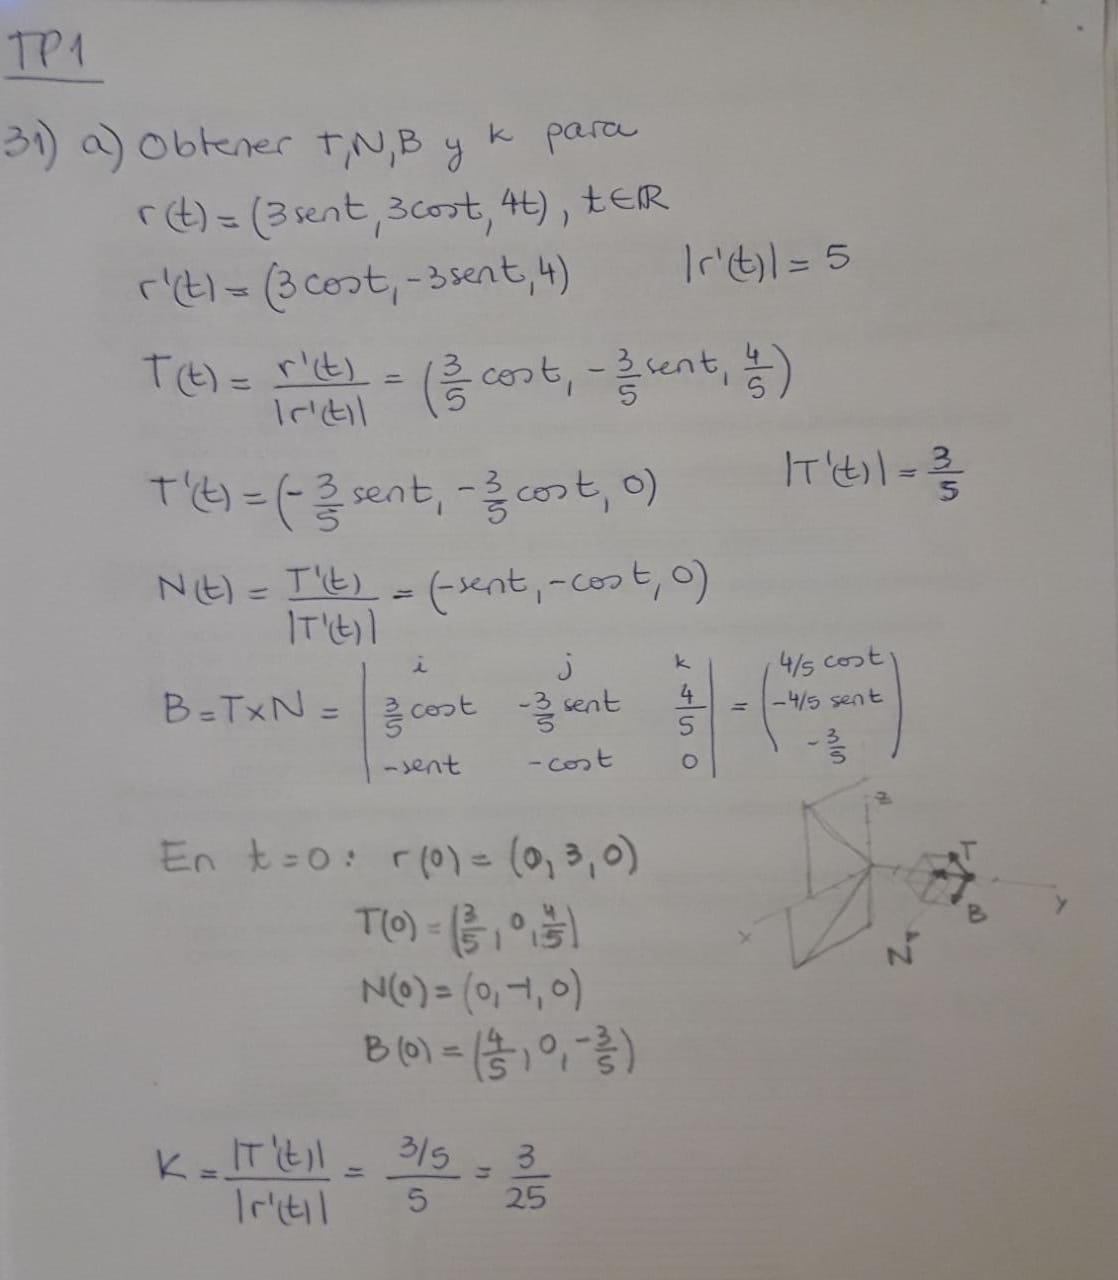 TP1
31) a) Obtener T,N,B y k para
r(t) = (3 sent, 3 cost, 4t), t∈ℝ
r'(t) = (3 cost, -3 sent, 4) |r'(t)| = 5
T(t) = r'(t)/|r'(t)| = (3/5 cost, -3/5 sent, 4/5)
T'(t) = (-3/5 sent, -3/5 cost, 0) |T'(t)| = 3/5
N(t) = T'(t)/|T'(t)| = (-sent, -cost, 0)
i j k
B = T×N = | 3/5 cost -3/5 sent 4/5 | = (4/5 cost
-4/5 sent
-3/5)
-sent -cost 0
En t=0: r(0) = (0, 3, 0)
T(0) = (3/5, 0, 4/5)
N(0) = (0, -1, 0)
B(0) = (4/5, 0, -3/5)
z
T
y
B
x
N
K = |T'(t)|/|r'(t)| = 3/5/5 = 3/25